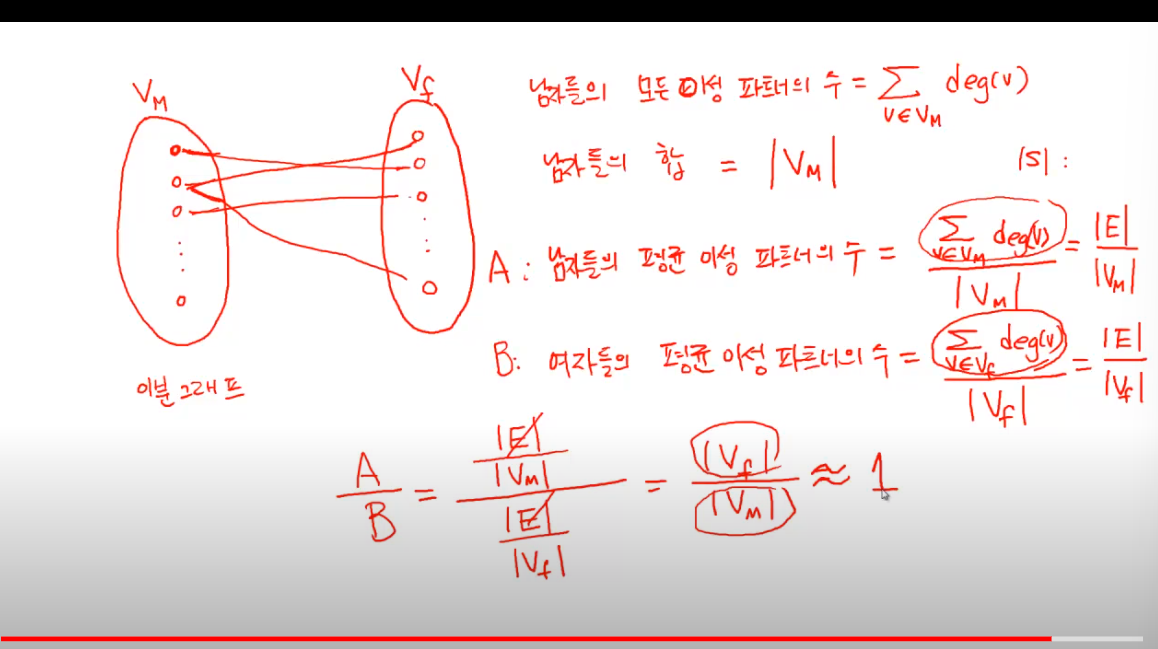 V_M
V_f
남자들의 모든 이성 파트너의 수 = ∑_{v∈V_M} deg(v)
남자들의 합 = |V_M|
|S| :
A : 남자들의 평균 이성 파트너의 수 = ∑_{v∈V_M} deg(v) / |V_M| = |E| / |V_M|
B: 여자들의 평균 이성 파트너의 수 = ∑_{v∈V_f} deg(v) / |V_f| = |E| / |V_f|
이분 그래프
A / B = (|E| / |V_M|) / (|E| / |V_f|) = |V_f| / |V_M| ≈ 1